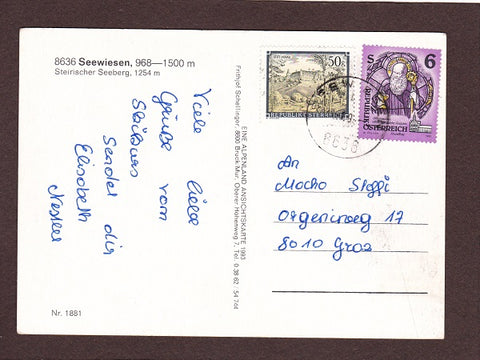 8636 Seewiesen, 968—1500 m
Steirischer Seeberg, 1254 m
Viele liebe
Grüße vom
Skikurs
Sendet dir
Elisabeth
Nr. 1881
EINE ALPENLAND ANSICHTSKARTE 1993
Frithjof Schellinger, 8600 Bruck/Mur, Oberer Höhenweg 7, Tel. 0 38 62
50g
REPUBLIK ÖSTERREICH
S 6
REPUBLIK
ÖSTERREICH
8636
An
Mocho Steffi
17
8010 Graz